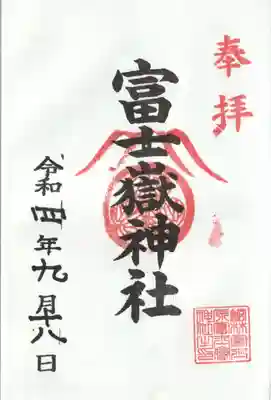 奉拝
富士嶽神社
令和四年九月十八日